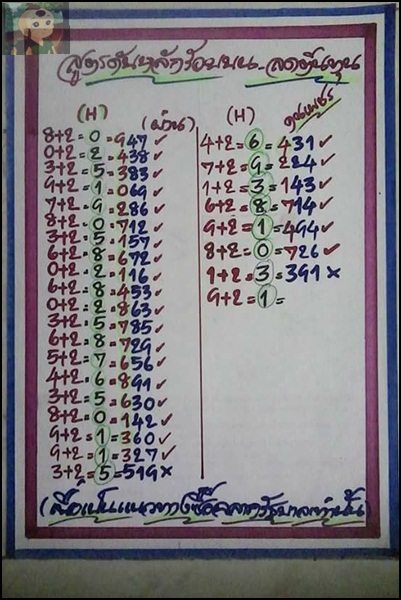 สูตรดับหลักร้อยบน - ลดต้นทุน
(H) (ผ่าน)
8+2=0=947✓
0+2=2=438✓
3+2=5=383✓
9+2=1=069✓
7+2=9=286✓
8+2=0=712✓
3+2=5=157✓
6+2=8=672✓
0+2=2=116✓
6+2=8=453✓
0+2=2=863✓
3+2=5=785✓
6+2=8=729✓
5+2=7=656✓
4+2=6=891✓
3+2=5=630✓
8+2=0=142✓
9+2=1=360✓
9+2=1=327✓
3+2=5=519×
(H)
4+2=6=431✓
7+2=9=224✓
1+2=3=143✓
6+2=8=714✓
9+2=1=494✓
8+2=0=726✓
1+2=3=391×
9+2=1=
(เพื่อเป็นแนวทางซื้อสลากรัฐบาลเท่านั้น)